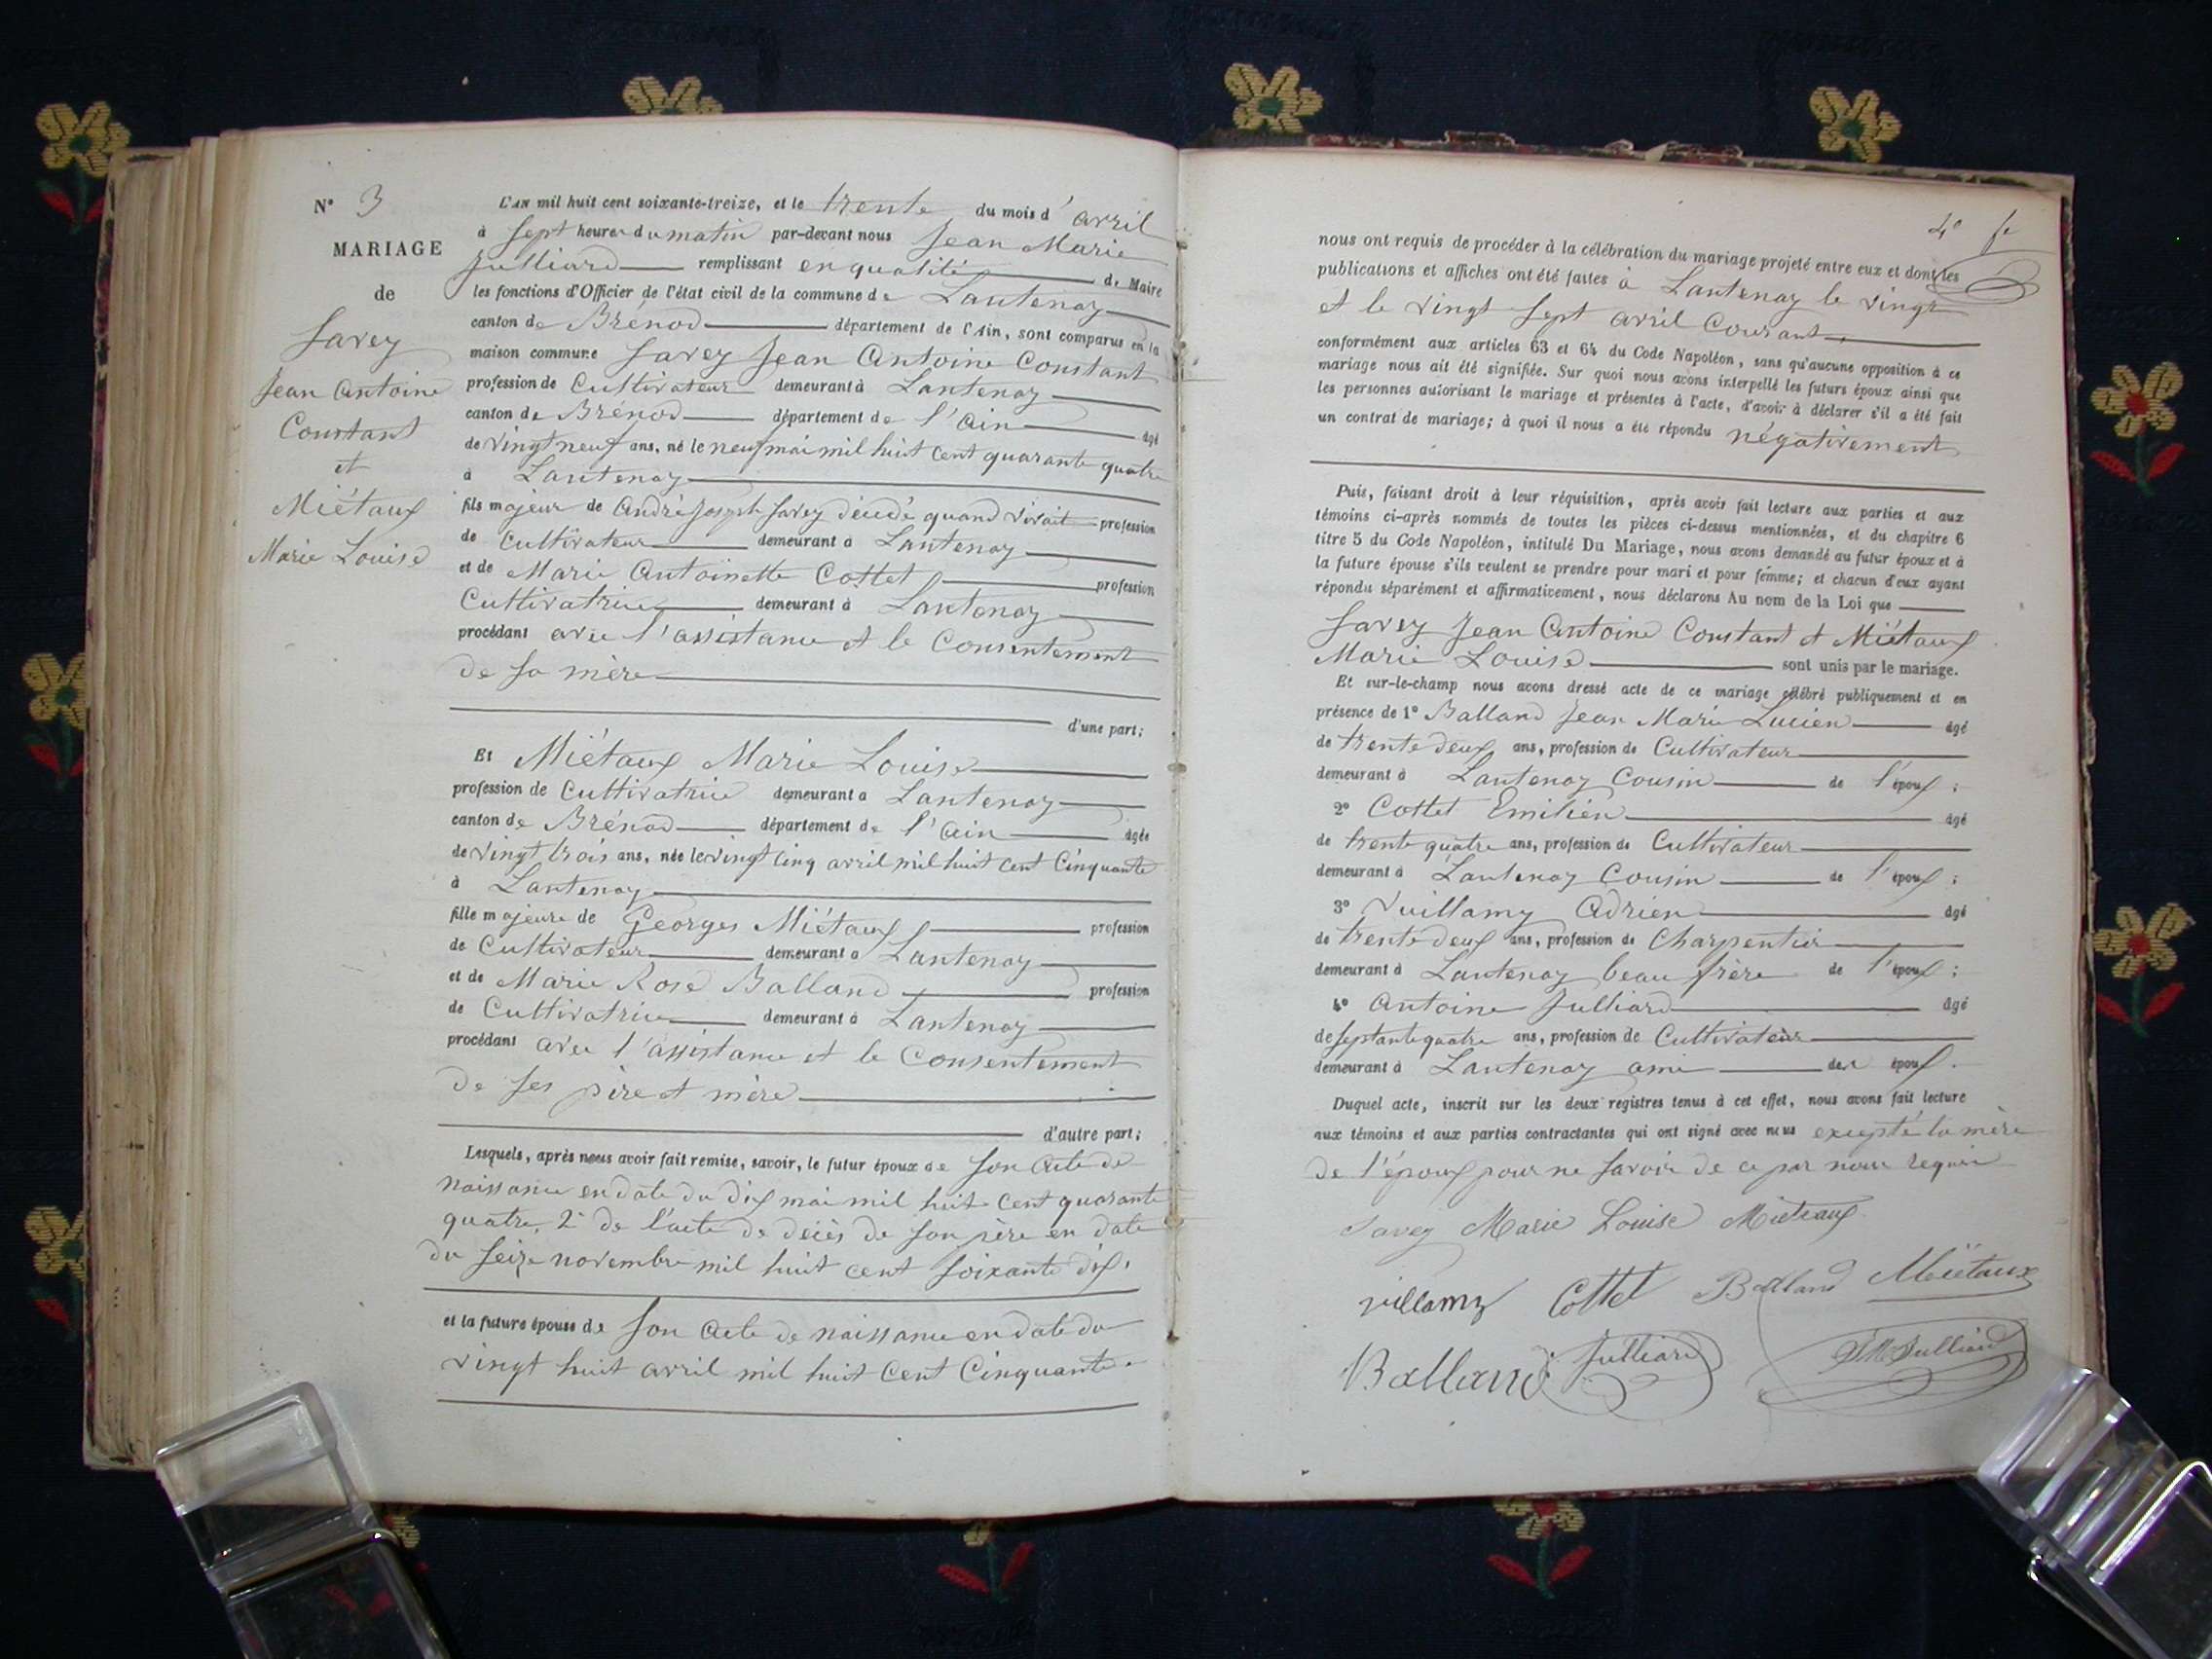 N° 3
MARIAGE
de
Savey
Jean Antoine
Constant
et
Miétaux
Marie Louise
L'AN mil huit cent soixante-treize, et le trente du mois d'avril
à sept heures du matin par-devant nous Jean Marie
Julliard remplissant en qualité de Maire
les fonctions d'Officier de l'état civil de la commune de Lantenay
canton de Brénod département de l'Ain, sont comparus en la
maison commune Savey Jean Antoine Constant
profession de Cultivateur demeurant à Lantenay
canton de Brénod département de l'Ain âgé
de vingt neuf ans, né le neuf mai mil huit cent quarante quatre
à Lantenay
fils majeur de André Joseph Savey décédé quand vivait profession
de cultivateur demeurant à Lantenay
et de Marie Antoinette Cottet profession
Cultivatrice demeurant à Lantenay
procédant avec l'assistance et le Consentement
de sa mère
d'une part;
Et Miétaux Marie Louise
profession de Cultivatrice demeurant à Lantenay
canton de Brénod département de l'Ain âgée
de vingt trois ans, née le vingt cinq avril mil huit cent Cinquante
à Lantenay
fille majeure de Georges Miétaux profession
de Cultivateur demeurant à Lantenay
et de Marie Rose Balland profession
de Cultivatrice demeurant à Lantenay
procédant avec l'assistance et le Consentement
de ses père et mère
d'autre part;
Lesquels, après nous avoir fait remise, savoir, le futur époux de son acte de
naissance en date du dix mai mil huit cent quarante
quatre, 2° de l'acte de décès de son père en date
du seize novembre mil huit cent soixante dix.
et la future épouse de son acte de naissance en date du
vingt huit avril mil huit Cent Cinquante.
nous ont requis de procéder à la célébration du mariage projeté entre eux et dont les
publications et affiches ont été faites à Lantenay le vingt
et le vingt sept avril Courant,
conformément aux articles 63 et 64 du Code Napoléon, sans qu'aucune opposition à ce
mariage nous ait été signifiée. Sur quoi nous avons interpellé les futurs époux ainsi que
les personnes autorisant le mariage et présentes à l'acte, d'avoir à déclarer s'il a été fait
un contrat de mariage; à quoi il nous a été répondu négativement
Puis, faisant droit à leur réquisition, après avoir fait lecture aux parties et aux
témoins ci-après nommés de toutes les pièces ci-dessus mentionnées, et du chapitre 6
titre 5 du Code Napoléon, intitulé Du Mariage, nous avons demandé au futur époux et à
la future épouse s'ils veulent se prendre pour mari et pour femme; et chacun d'eux ayant
répondu séparément et affirmativement, nous déclarons Au nom de la Loi que
Savey Jean Antoine Constant et Miétaux
Marie Louise sont unis par le mariage.
Et sur-le-champ nous avons dressé acte de ce mariage célébré publiquement et en
présence de 1° Balland Jean Marie Lucien âgé
de trente deux ans, profession de Cultivateur
demeurant à Lantenay Cousin de l'époux;
2° Cottet Emilien âgé
de trente quatre ans, profession de Cultivateur
demeurant à Lantenay Cousin de l'époux;
3° Vuillamy Adrien âgé
de trente deux ans, profession de Charpentier
demeurant à Lantenay beau frère de l'époux;
4° Antoine Julliard âgé
de septante quatre ans, profession de Cultivateur
demeurant à Lantenay ami des époux.
Duquel acte, inscrit sur les deux registres tenus à cet effet, nous avons fait lecture
aux témoins et aux parties contractantes qui ont signé avec nous excepté la mère
de l'époux pour ne savoir de ce par nous requis
Savey Marie Louise Miétaux
villamy Cottet Balland Miétaux
Balland Julliard JM Julliard